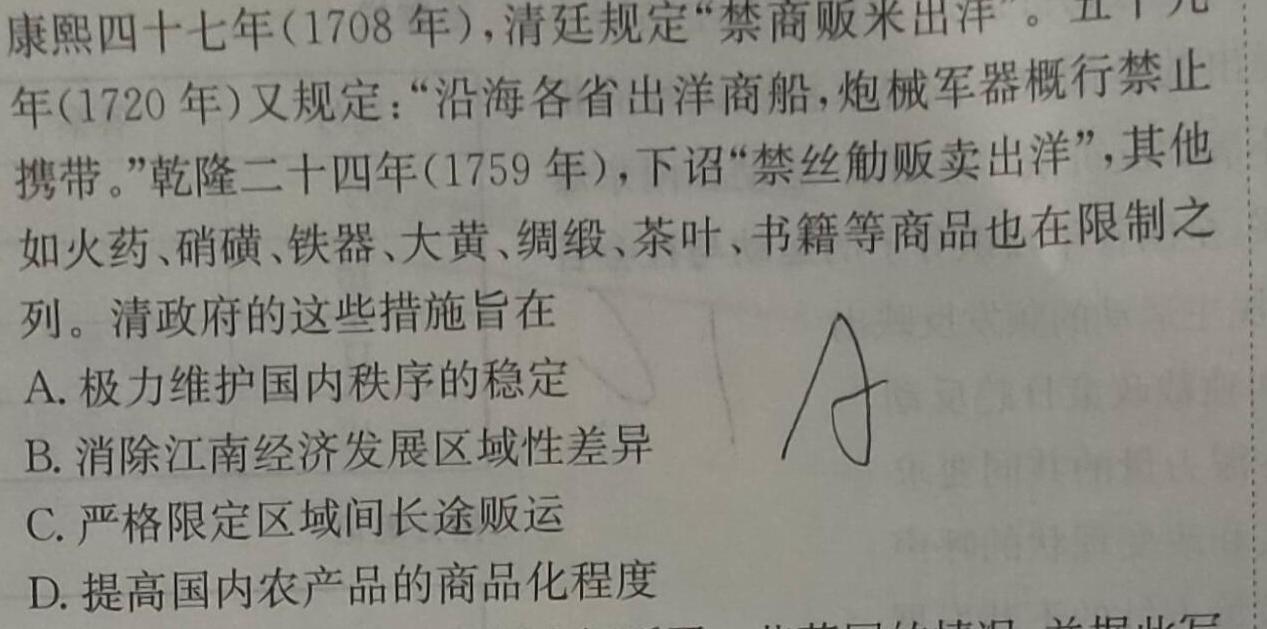 康熙四十七年(1708 年),清廷规定“禁商贩米出洋”。五十九
年(1720 年)又规定:“沿海各省出洋商船,炮械军器概行禁止
携带。”乾隆二十四年(1759 年),下诏“禁丝觔贩卖出洋”,其他
如火药、硝磺、铁器、大黄、绸缎、茶叶、书籍等商品也在限制之
列。清政府的这些措施旨在
A. 极力维护国内秩序的稳定
B. 消除江南经济发展区域性差异
C. 严格限定区域间长途贩运
D. 提高国内农产品的商品化程度
A